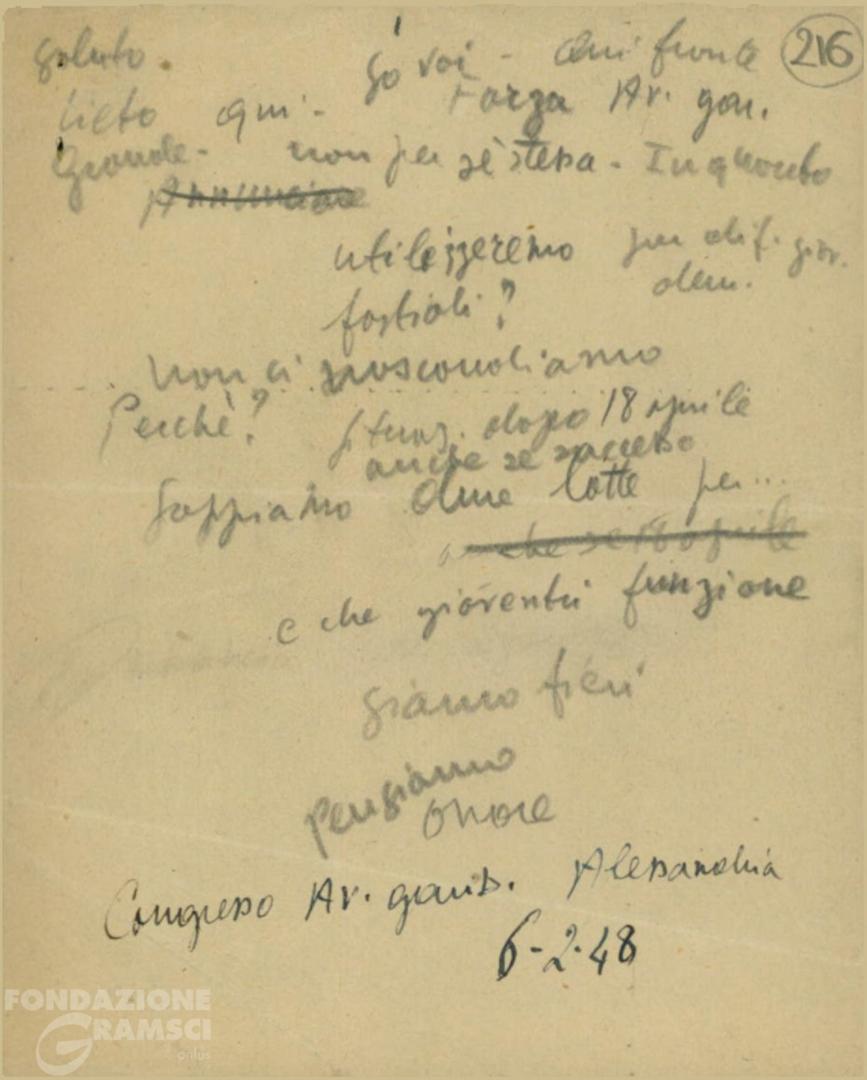 216
Saluto. So voi -
Lieto qui - Forza Av. gar.
Grande - non per sè stessa - In quanto
Annunciare
utilizzeremo per dif. giov.
dem.
faziosi?
non ci nascondiamo
Perchè? situaz. dopo 18 aprile
anche se successo
Sappiamo dure lotte per...
anche se 18 aprile
e che gioventù funzione
Siamo fieri
Pensiamo
onore
Congresso Av. garib. Alessandria
6-2-48
FONDAZIONE
GRAMSCI
onlus